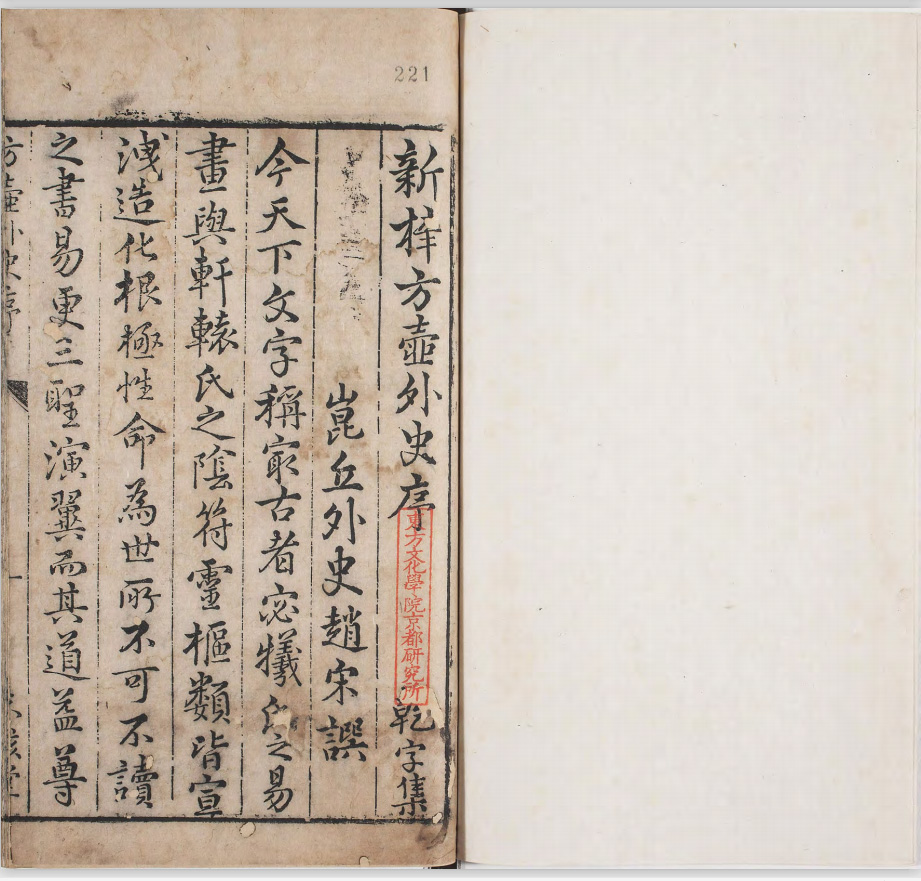 221
新梓方壺外史序 乾字集
東方文化學院京都研究所
崑丘外史趙宋譔
今天下文字稱㝡古者宓犧氏之易
畫與軒轅氏之陰符靈樞類皆宣
洩造化根極性命為世所不可不讀
之書易更三聖演翼而其道益尊
方壺外史序
一